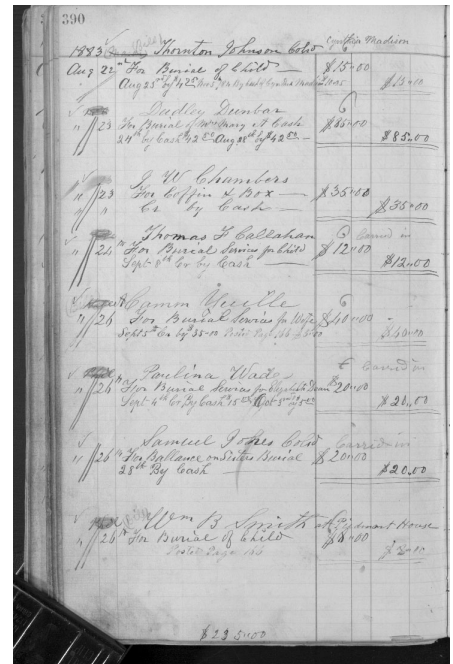 390
1883 Thornton Johnson Cold Cynthia Madison
Aug 22nd For Burial of Child — $15.00
Aug 25th by $4.25 $15.00
Dudley Dunbar
" 23 For Burial of Mary A Cash $85.00
24th by Cash 42.50 Aug 28th by $42.50 — $85.00
J W Chambers
" 23 For Coffin & Box — $35.00
" " Cr. by Cash — $35.00
Thomas F Callahan Carried in
" 24th For Burial Servies for Child $12.00
Sept 8th Cr by Cash — $12.00
Camm Yuille
" 26 For Burial Servies for Wife $40.00
Sept 5th Cr by $35.00 Posted Page 166 $40.00
Paulina Wade Carried in
" 26th For Burial Servies for Elizabeth $20.00
Sept 4th Cr By Cash $15.00 Oct 5th by 5.00 $20.00
Samuel Jones Cold Carried in
" 26th For Ballance on Sisters Burial $20.00
28th By Cash — $20.00
Wm B Smith at Piedmont House
" 26th For Burial of Child
Posted Page 166
$235.00